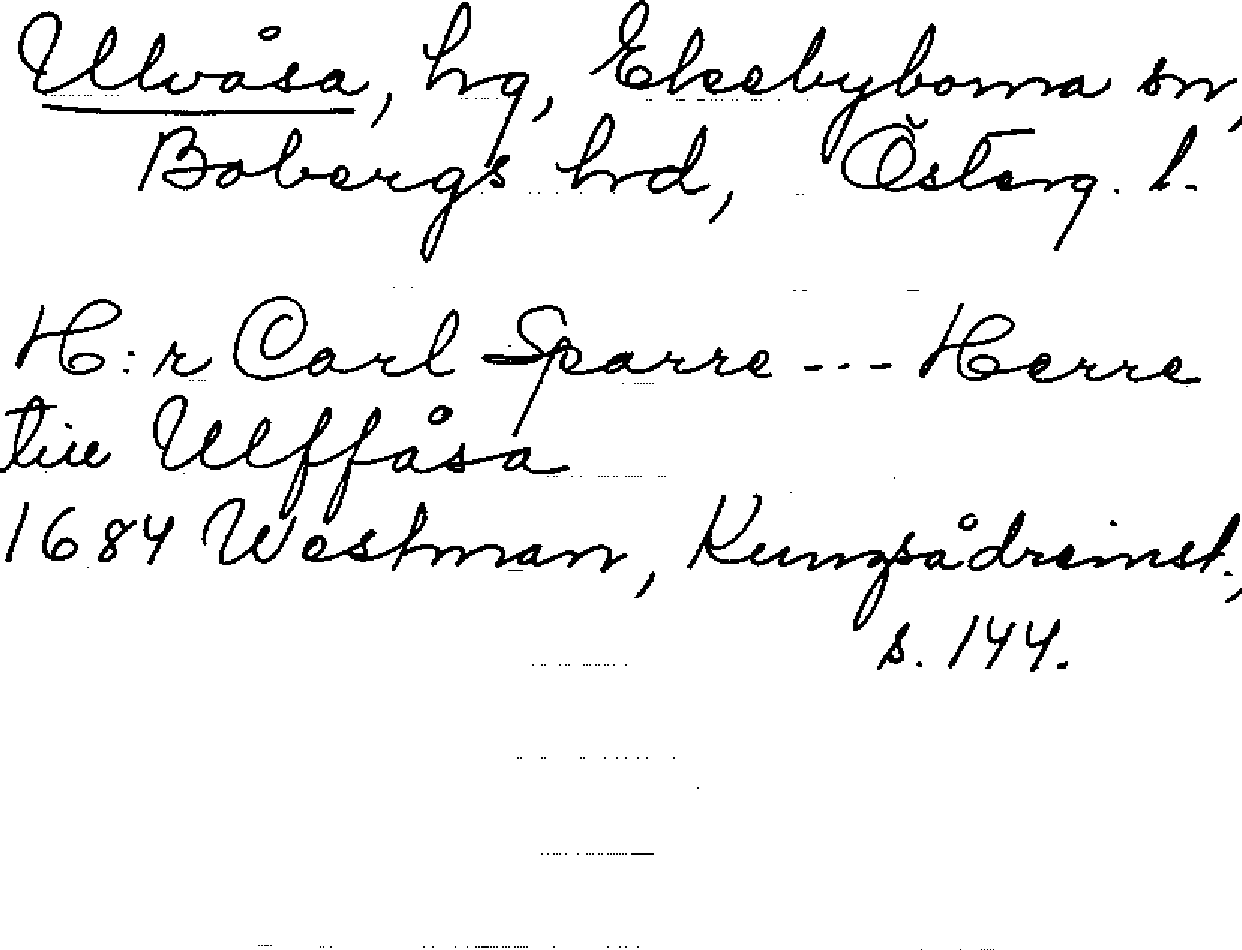 Ulvåsa, hg, Ekebyborna sn,
Bobergs hrd, Österg. l.
H:r Carl Sparre --- Herre
till Ulffåsa
1684 Westman, Kungsådreinst.,
s. 144.